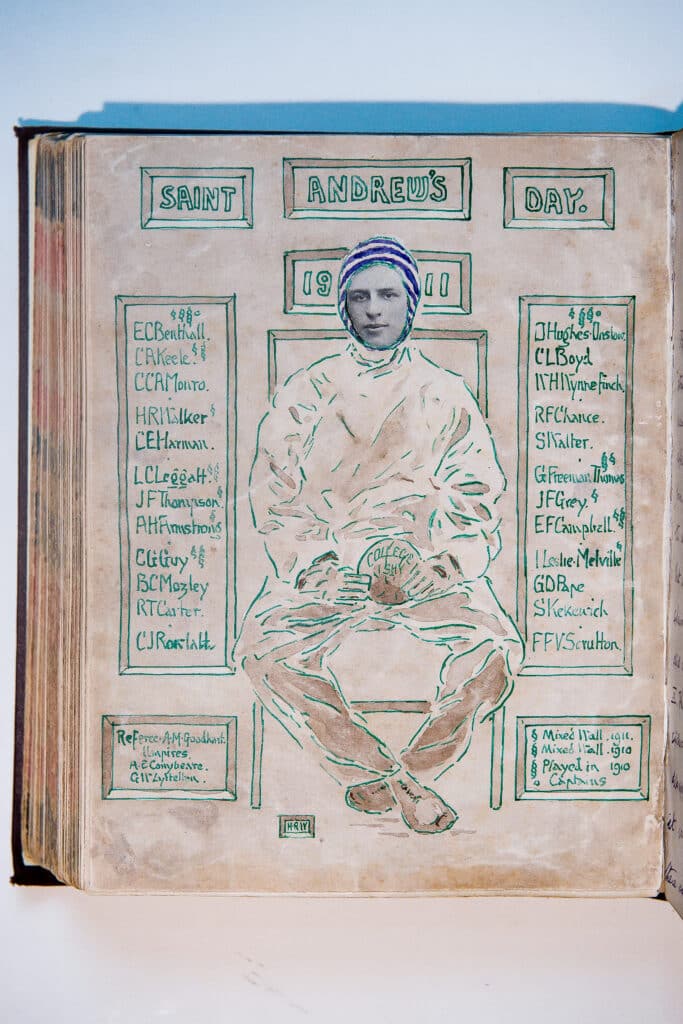 SAINT ANDREW'S DAY.
1911
E.C.Benthall. §§§°
C.R.Keele. §§
C.C.A.Monro.
H.R.Walker §
C.E.Harman.
L.C.Leggatt. §§
J.F.Thompson. §
A.H.Armstrong §
C.G.Guy. §§
B.C.Mozley
R.T.Carter.
C.J.Rowlatt.
J.Hughes-Onslow. §§§°
C.L.Boyd
W.H.Wynne Finch.
R.F.Chance.
S.Walter.
G.Freeman Thomas §§
J.F.Grey. §
E.F.Campbell. §§
I.Leslie-Melville §
G.D.Pape
S.Kekewich
F.F.V.Scrutton.
COLLEGE
1911
Referee: A.M.Goodhart.
Umpires.
A.E.Conybeare.
G.W.Lyttelton.
§ Mixed Wall. 1911.
§ Mixed Wall. 1910
§ Played in 1910
° Captains
H·R·W